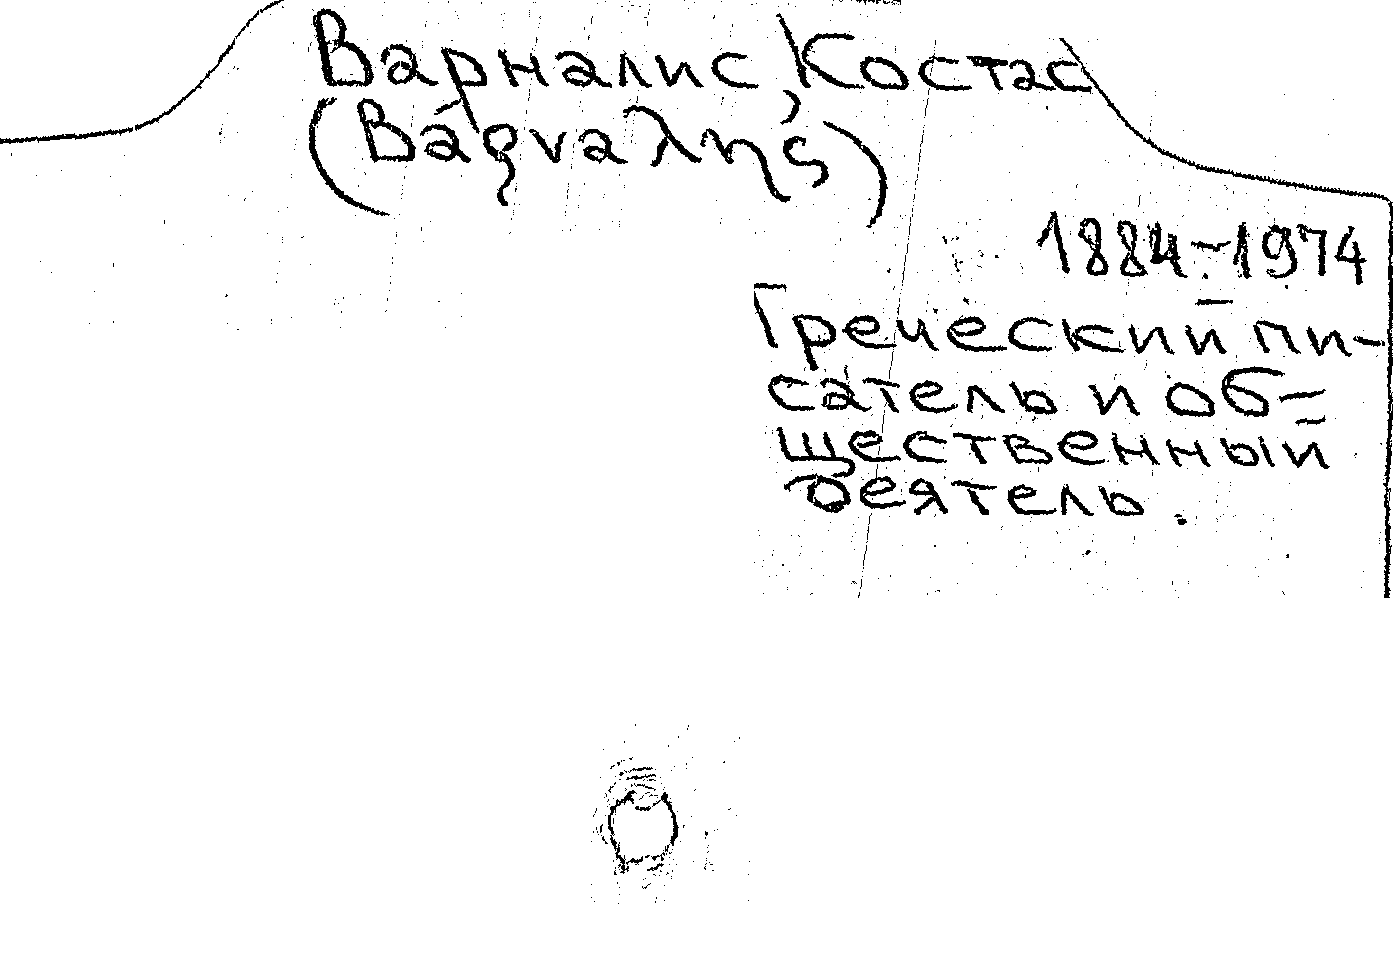 Варналис, Костас
(Βάρναλης)
1884-1974
Греческий пи-
сатель и об-
щественный
деятель.